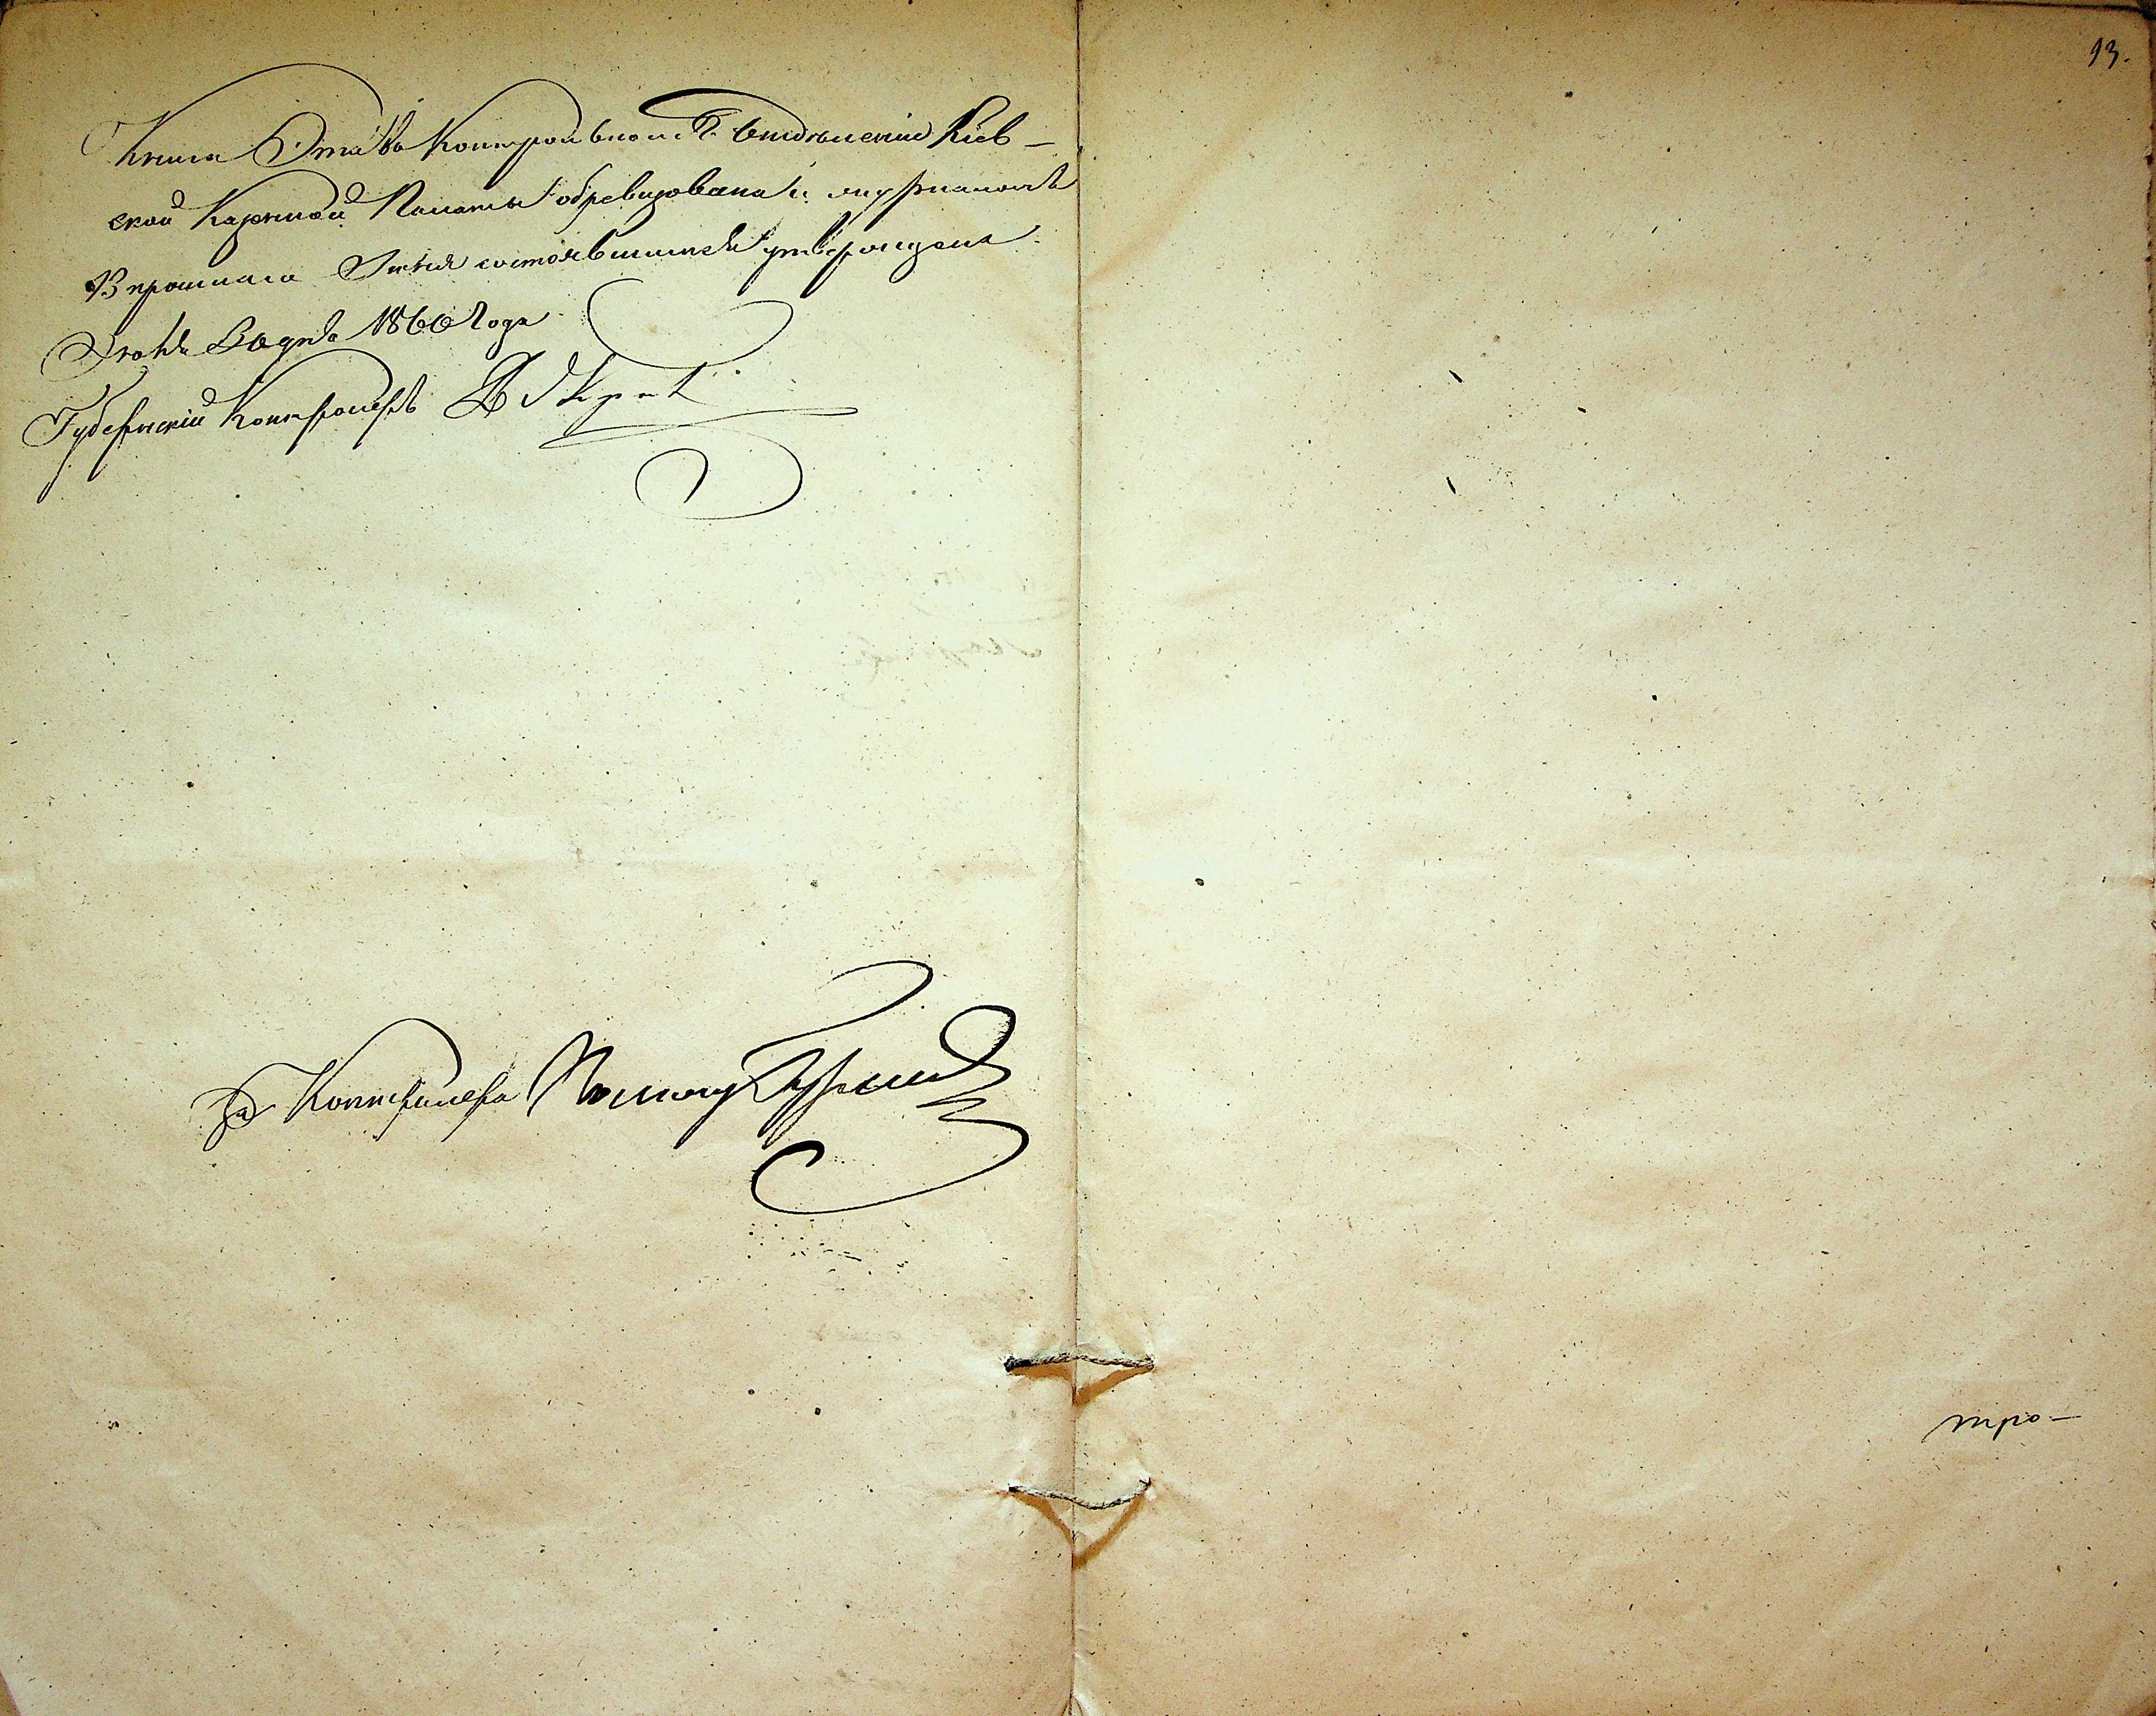 Книга Эта въ Контрольномъ Отдѣленіи Кіев-
ской Казенной Палаты обревизована и журналомъ
13 прошлаго Іюня состоявшимся утверждена
Іюля дня 1860 года
Губернскій Контролеръ
За Контролера
13.
тро-